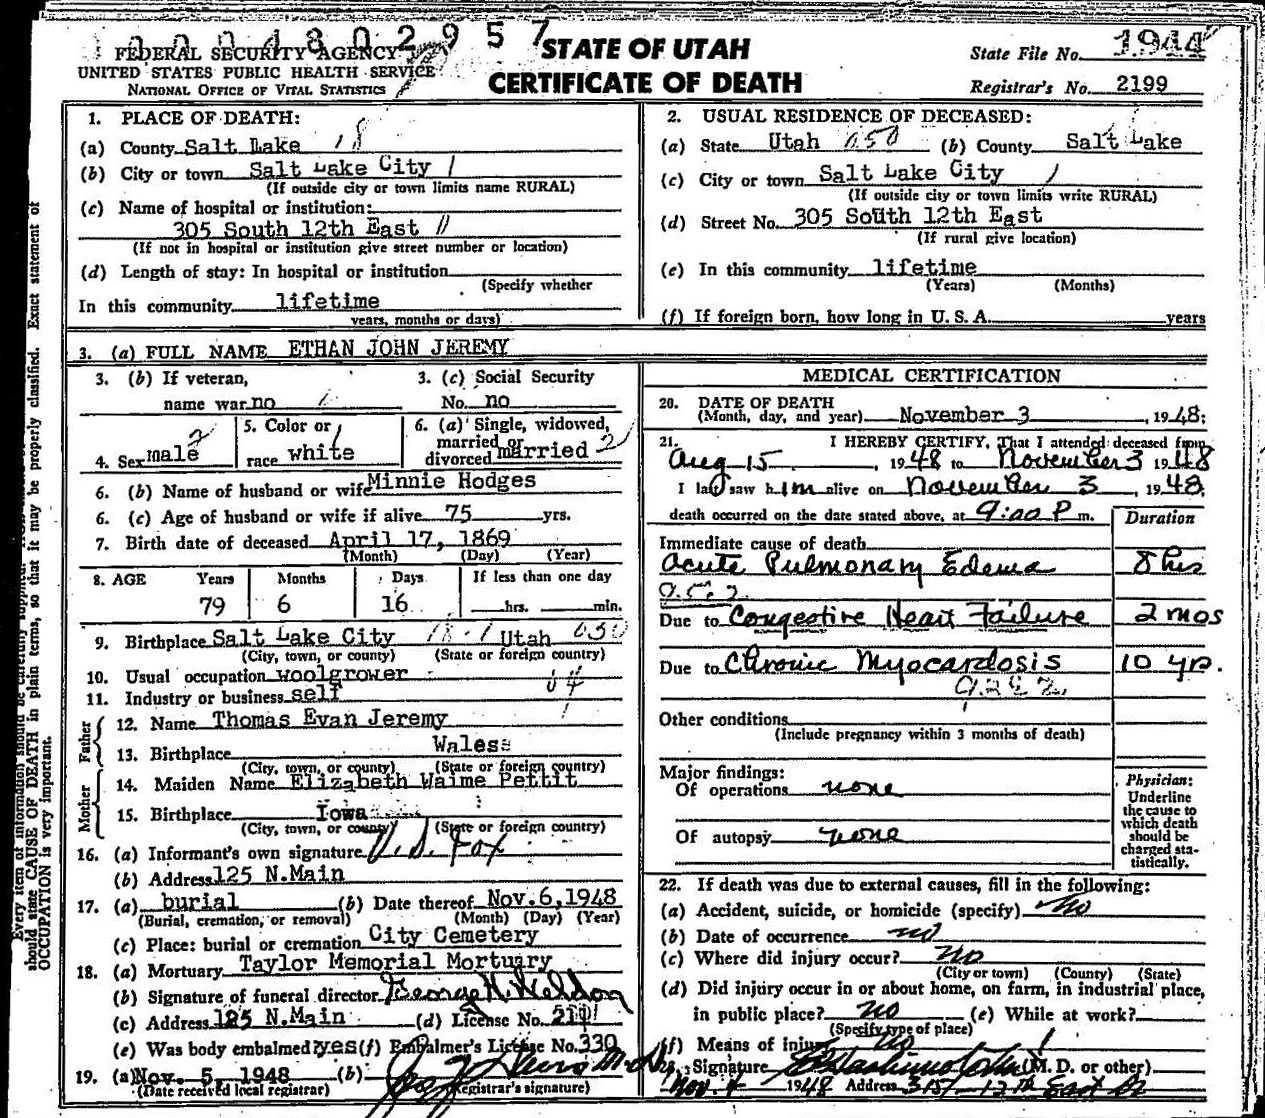 1 0 0 4 8 0 2 9 5 7
FEDERAL SECURITY AGENCY
UNITED STATES PUBLIC HEALTH SERVICE
NATIONAL OFFICE OF VITAL STATISTICS
STATE OF UTAH
CERTIFICATE OF DEATH
State File No. 1944
Registrar's No. 2199
1. PLACE OF DEATH:
(a) County Salt Lake 18
(b) City or town Salt Lake City 1
(If outside city or town limits name RURAL)
(c) Name of hospital or institution:
305 South 12th East 11
(If not in hospital or institution give street number or location)
(d) Length of stay: In hospital or institution
(Specify whether
In this community lifetime
years, months or days)
2. USUAL RESIDENCE OF DECEASED:
(a) State Utah 050 (b) County Salt Lake
(c) City or town Salt Lake City 1
(If outside city or town limits write RURAL)
(d) Street No. 305 South 12th East
(If rural give location)
(e) In this community lifetime
(Years) (Months)
(f) If foreign born, how long in U. S. A. years
3. (a) FULL NAME ETHAN JOHN JEREMY
3. (b) If veteran, name war no
3. (c) Social Security No. no
4. Sex male 2
5. Color or race white 1
6. (a) Single, widowed, married or divorced married 2
6. (b) Name of husband or wife Minnie Hodges
6. (c) Age of husband or wife if alive 75 yrs.
7. Birth date of deceased April 17, 1869
(Month) (Day) (Year)
8. AGE Years Months Days If less than one day
79 6 16 hrs. min.
9. Birthplace Salt Lake City 18-1 Utah 050
(City, town, or county) (State or foreign country)
10. Usual occupation woolgrower
11. Industry or business self
Father
12. Name Thomas Evan Jeremy
13. Birthplace Wales
(City, town, or county) (State or foreign country)
Mother
14. Maiden Name Elizabeth Waime Pettit
15. Birthplace Iowa
(City, town, or county) (State or foreign country)
16. (a) Informant's own signature V. D. Fox
(b) Address 125 N.Main
17. (a) burial (b) Date thereof Nov.6,1948
(Burial, cremation, or removal) (Month) (Day) (Year)
(c) Place: burial or cremation City Cemetery
18. (a) Mortuary Taylor Memorial Mortuary
(b) Signature of funeral director George H. Weldon
(c) Address 125 N.Main (d) License No. 211
(e) Was body embalmed? yes (f) Embalmer's License No. 330
19. (a) Nov. 5, 1948 (b)
(Date received local registrar) Registrar's signature)
MEDICAL CERTIFICATION
20. DATE OF DEATH
(Month, day, and year) November 3, 1948:
21. I HEREBY CERTIFY, That I attended deceased from
Aug 15, 1948 to November 3 1948
I last saw him alive on November 3, 1948,
death occurred on the date stated above, at 9:00 P m.
Duration
Immediate cause of death
Acute Pulmonary Edema 8 hrs
Due to Congestive Heart Failure 2 mos
Due to Chronic Myocardosis 10 yrs.
Other conditions
(Include pregnancy within 3 months of death)
Major findings:
Of operations none
Of autopsy none
Physician:
Underline
the cause to
which death
should be
charged sta-
tistically.
22. If death was due to external causes, fill in the following:
(a) Accident, suicide, or homicide (specify) No
(b) Date of occurrence no
(c) Where did injury occur? no
(City or town) (County) (State)
(d) Did injury occur in or about home, on farm, in industrial place,
in public place? no (e) While at work?
(Specify type of place)
(f) Means of injury no
Signature (M. D. or other)
Nov. 4 1948 Address 315 - 12th East
Every item of information should be carefully supplied.
should state CAUSE OF DEATH in plain terms, so that it may be properly classified. Exact statement of
OCCUPATION is very important.